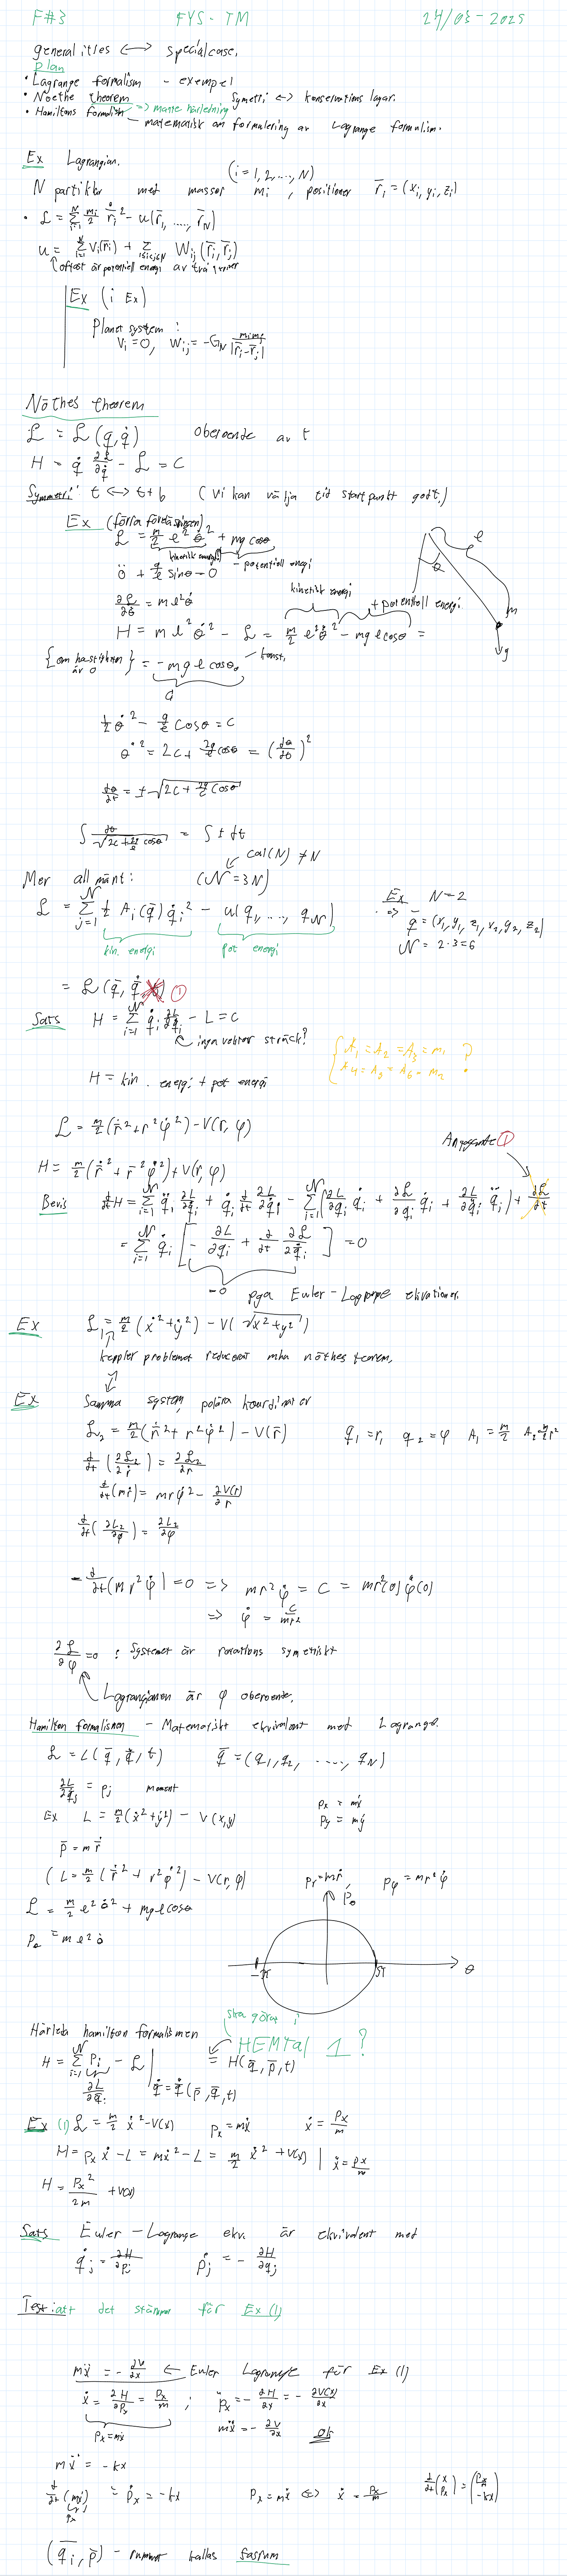 F#3 FYS-TM 24/03-2025
generalities ⟷ specialcase.
plan
• Lagrange formalism - exempel
• Noethe theorem Symetri <-> konservations lagar.
• Hamiltons formalism - matematisk om formulering av Lagrange formalism.
=> matte härledning
Ex Lagrangian.
(i=1,2,...,N)
N partiklar med massor mᵢ, positioner r̄ᵢ = (xᵢ, yᵢ, zᵢ)
• ℒ = Σ mᵢ/2 ṙᵢ² - u(r̄₁, ..., r̄_N)
u = Σ Vᵢ(r̄ᵢ) + Σ Wᵢⱼ(r̄ᵢ, r̄ⱼ)
Ex (i Ex)
Planet system:
Vᵢ = 0, Wᵢⱼ = -G_N mᵢmⱼ/|r̄ᵢ-r̄ⱼ|
Nöthes theorem
ℒ = ℒ(q, q̇) oberoende av t
H = q̇ ∂ℒ/∂q̇ - ℒ = C
Symmetri: t <-> t+b (vi kan välja tid startpunkt godt.)
Ex (förra föreläsningen)
ℒ = m/2 ℓ² θ̇² + mg cosθ
kinetisk energi - potentiell energi
θ̈ + g/ℓ sinθ = 0
∂ℒ/∂θ̇ = mℓ²θ̇
kinetisk energi + potentiell energi
H = mℓ²θ̇² - ℒ = m/2 ℓ²θ̇² - mgℓcosθ =
{om hastigheten är 0} = -mgℓcosθ₀ - konst.
ℓ
θ
m
g
½θ̇² - g/ℓ cosθ = C
θ̇² = 2C + 2g/ℓ cosθ = (dθ/dt)²
dθ/dt = ±√(2C + 2g/ℓ cosθ)
∫ dθ/√(2C + 2g/ℓ cosθ) = ∫ ± dt
Mer allmänt: (𝒩 = 3N) cal(N) ≠ N
ℒ = Σ ½ Aᵢ(q̄) q̇ᵢ² - u(q₁, ..., q_𝒩)
kin. energi pot energi
Ex N=2
=> q̄ = (x₁, y₁, z₁, x₂, y₂, z₂)
𝒩 = 2·3 = 6
= ℒ(q̄, q̄̇) ①
Sats H = Σ q̇ᵢ ∂ℒ/∂q̇ᵢ - L = C
inga vektor sträck?
{A₁=A₂=A₃=m₁
A₄=A₅=A₆=m₂ ?
H = kin. energi + pot energi
ℒ = m/2(ṙ² + r²φ̇²) - V(r, φ)
H = m/2(ṙ² + r²φ̇²) + V(r, φ)
Bevis d/dt H = Σ q̈ᵢ ∂L/∂q̇ᵢ + q̇ᵢ d/dt ∂L/∂q̇ᵢ - Σ(∂L/∂qᵢ q̇ᵢ + ∂ℒ/∂qᵢ q̇ᵢ + ∂L/∂q̇ᵢ q̈ᵢ) + ∂ℒ/∂t
= Σ q̇ᵢ [-∂L/∂qᵢ + d/dt ∂ℒ/∂q̇ᵢ] = 0
=0 pga Euler-Lagrange ekvationer.
Ex ℒ₁ = m/2(ẋ²+ẏ²) - V(√(x²+y²))
keppler problemet reducerat mha nöthes teorem.
Ex Samma system, polära koordinater
ℒ₂ = m/2(ṙ² + r²φ̇²) - V(r) q₁=r, q₂=φ A₁=m/2 A₂=m/2 r²
d/dt(∂ℒ₂/∂ṙ) = ∂ℒ₂/∂r
d/dt(mṙ) = mrφ̇² - ∂V(r)/∂r
d/dt(∂L₂/∂φ̇) = ∂L₂/∂φ
- d/dt(mr²φ̇) = 0 => mr²φ̇ = C = mr²(0)φ̇(0)
=> φ̇ = C/mr²
∂ℒ/∂φ = 0 : Systemet är rotations symetriskt
Lagrangianen är φ oberoende.
Hamilton formalismen - Matematiskt ekvivalent med Lagrange.
ℒ = L(q̄, q̄̇, t) q̄ = (q₁, q₂, ....., q_N)
∂L/∂q̇ⱼ = pⱼ moment
Ex L = m/2(ẋ²+ẏ²) - V(x,y) pₓ = mẋ
p_y = mẏ
p̄ = m r̄̇
(L = m/2(ṙ² + r²φ̇²) - V(r,φ) p_r = mṙ, p_φ = mr²φ̇
ℒ = m/2 ℓ²θ̇² + mgℓcosθ
p_θ = mℓ²θ̇
p_θ
-π π θ
Härleda hamilton formalismen
ska göras i HEMtal 1?
H = Σ pᵢ - ℒ | q̇=q̇(p̄, q̄, t) = H(q̄, p̄, t)
∂L/∂q̇ᵢ
Ex (1) ℒ = m/2 ẋ² - V(x) pₓ = mẋ ẋ = pₓ/m
H = pₓẋ - L = mẋ² - L = m/2 ẋ² + V(x) | ẋ = pₓ/m
H = pₓ²/2m + V(x)
Sats Euler-Lagrange ekv. är ekvivalent med
q̇ⱼ = ∂H/∂pⱼ ṗⱼ = -∂H/∂qⱼ
Test: att det stämmer för Ex(1)
mẍ = -∂V/∂x ← Euler Lagrange för Ex (1)
ẋ = ∂H/∂pₓ = pₓ/m ; ṗₓ = -∂H/∂x = -∂V(x)/∂x
pₓ=mẋ mẍ = -∂V/∂x ok
mẍ = -kx
d/dt(mẋ) = ṗₓ = -kx pₓ = mẋ <=> ẋ = pₓ/m d/dt(x pₓ) = (pₓ/m -kx)
pₓ
(q̄ᵢ, p̄) - rummet kallas fasrum